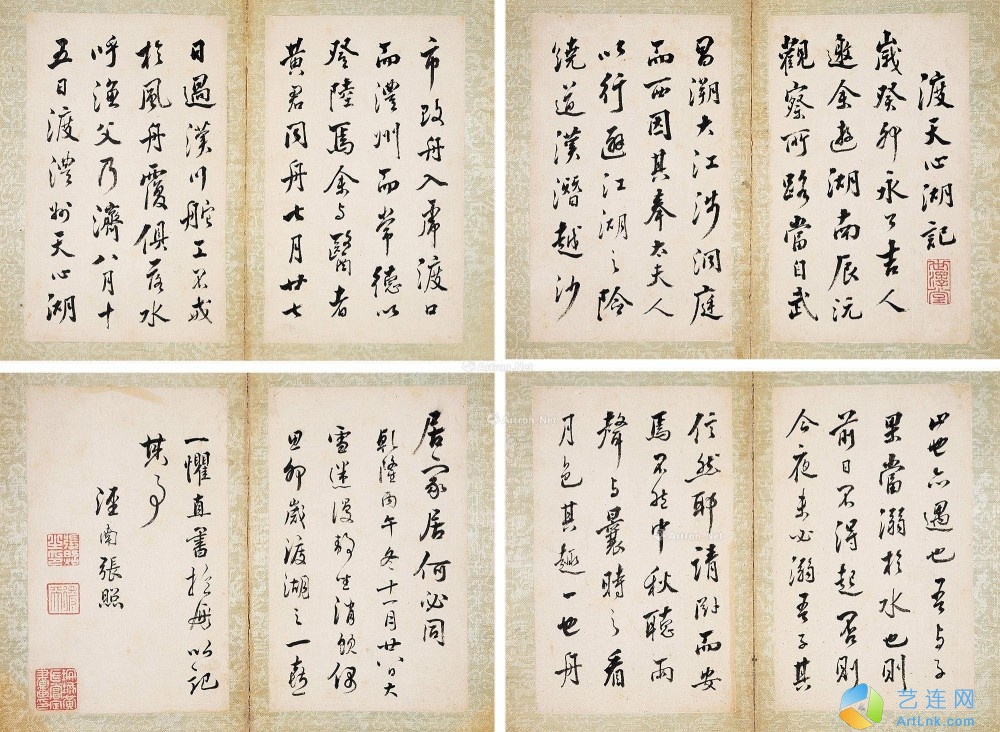 渡天心湖記
歲癸卯永公吉人
邀余遊湖南辰沅
觀察所路當自武
昌溯大江涉洞庭
而西因其奉太夫人
以行避江湖之險
繞道漢潛越沙
市改舟入虎渡口
而澧州而常德以
登陸焉余与醫者
黃君同舟七月廿七
日過漢川舵工不戒
於風舟覆俱落水
呼漁父乃濟八月十
五日渡澧州天心湖
此也亦遇也吾与子
果當溺於水也則
前日不得起否則
今夜未必溺吾子其
信然耶請卧而安
焉不然中秋聽雨
聲与曩時之看
月色其趣一也舟
居家居何必同
乾隆丙午冬十一月廿八大
雪迷漫 坐消 偶
思卯歲渡湖之一喜
一懼直書於冊以記
其事
南張照
世澤堂
艺连网
ArtLnk.com
Artron.Net